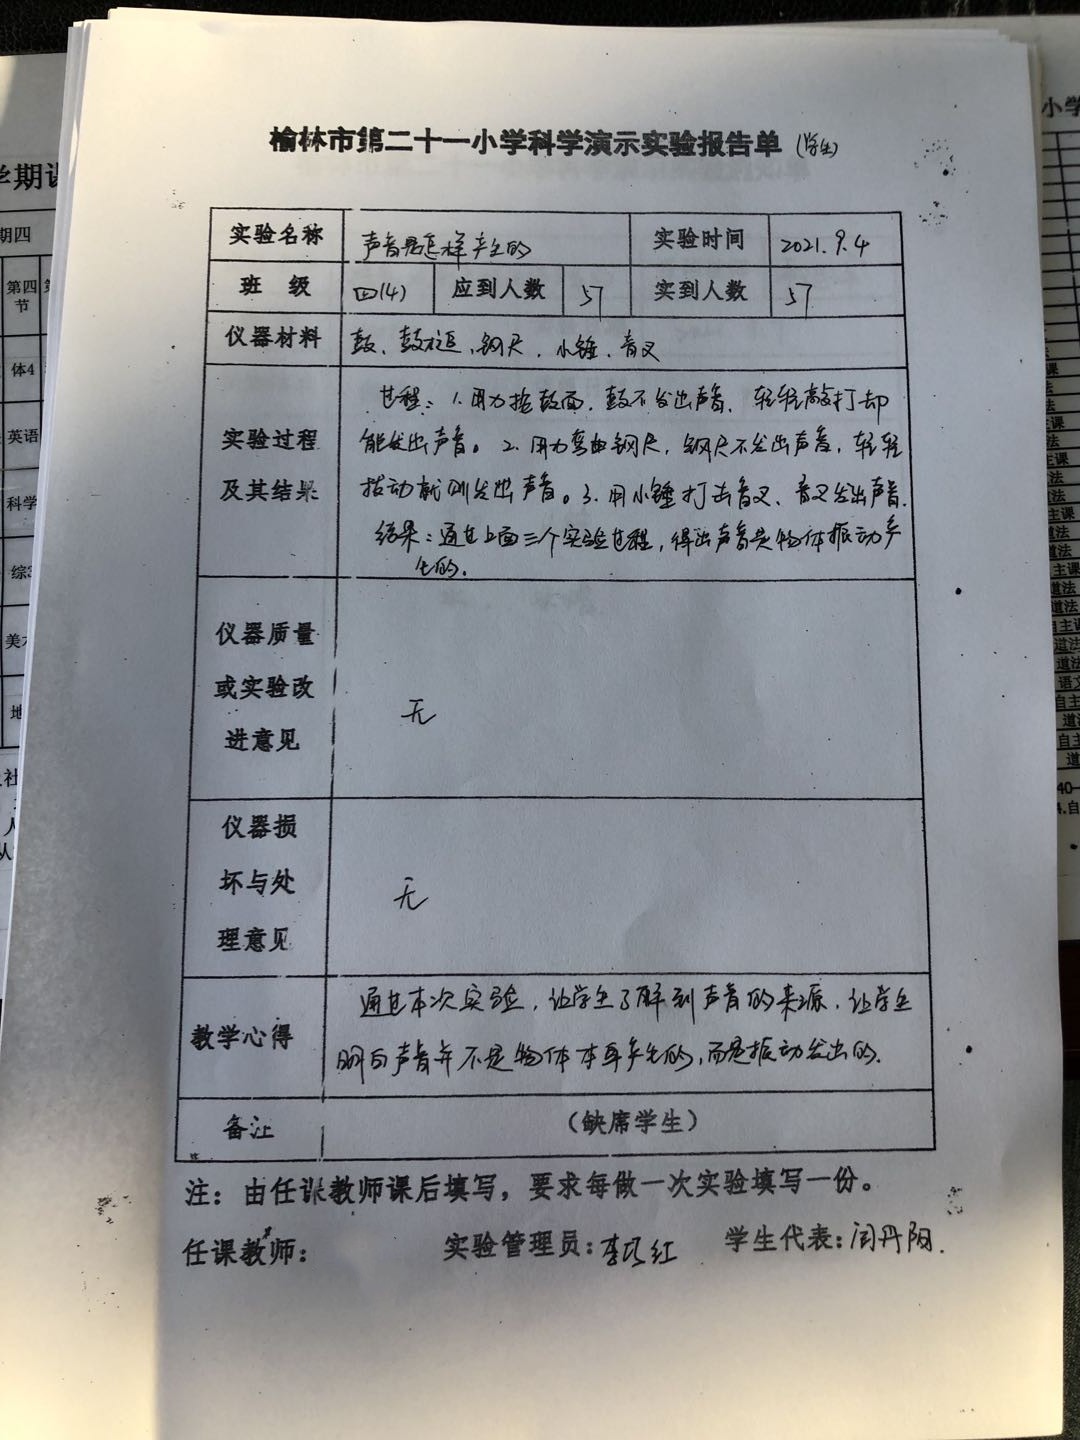 榆林市第二十一小学科学演示实验报告单 (学生)
实验名称 声音是怎样产生的 实验时间 2021.9.4
班 级 四(4) 应到人数 57 实到人数 57
仪器材料 鼓、鼓槌、钢尺、小锤、音叉
实验过程及其结果
过程：1.用力按鼓面，鼓不发出声音，轻轻敲打却
能发出声音。2.用力弯曲钢尺，钢尺不发出声音，轻轻
拨动就则发出声音。3.用小锤打击音叉、音叉发出声音.
结果：通过上面三个实验过程，得出声音是物体振动产
生的.
仪器质量
或实验改
进意见
无
仪器损
坏与处
理意见
无
教学心得
通过本次实验，让学生了解到声音的来源，让学生
明白声音并不是物体本身产生的，而是振动发出的.
备注 （缺席学生）
注：由任课教师课后填写，要求每做一次实验填写一份。
任课教师： 实验管理员: 学生代表:闫丹阳.
学期课
期四
第四
节
体4
英语
科学
小学